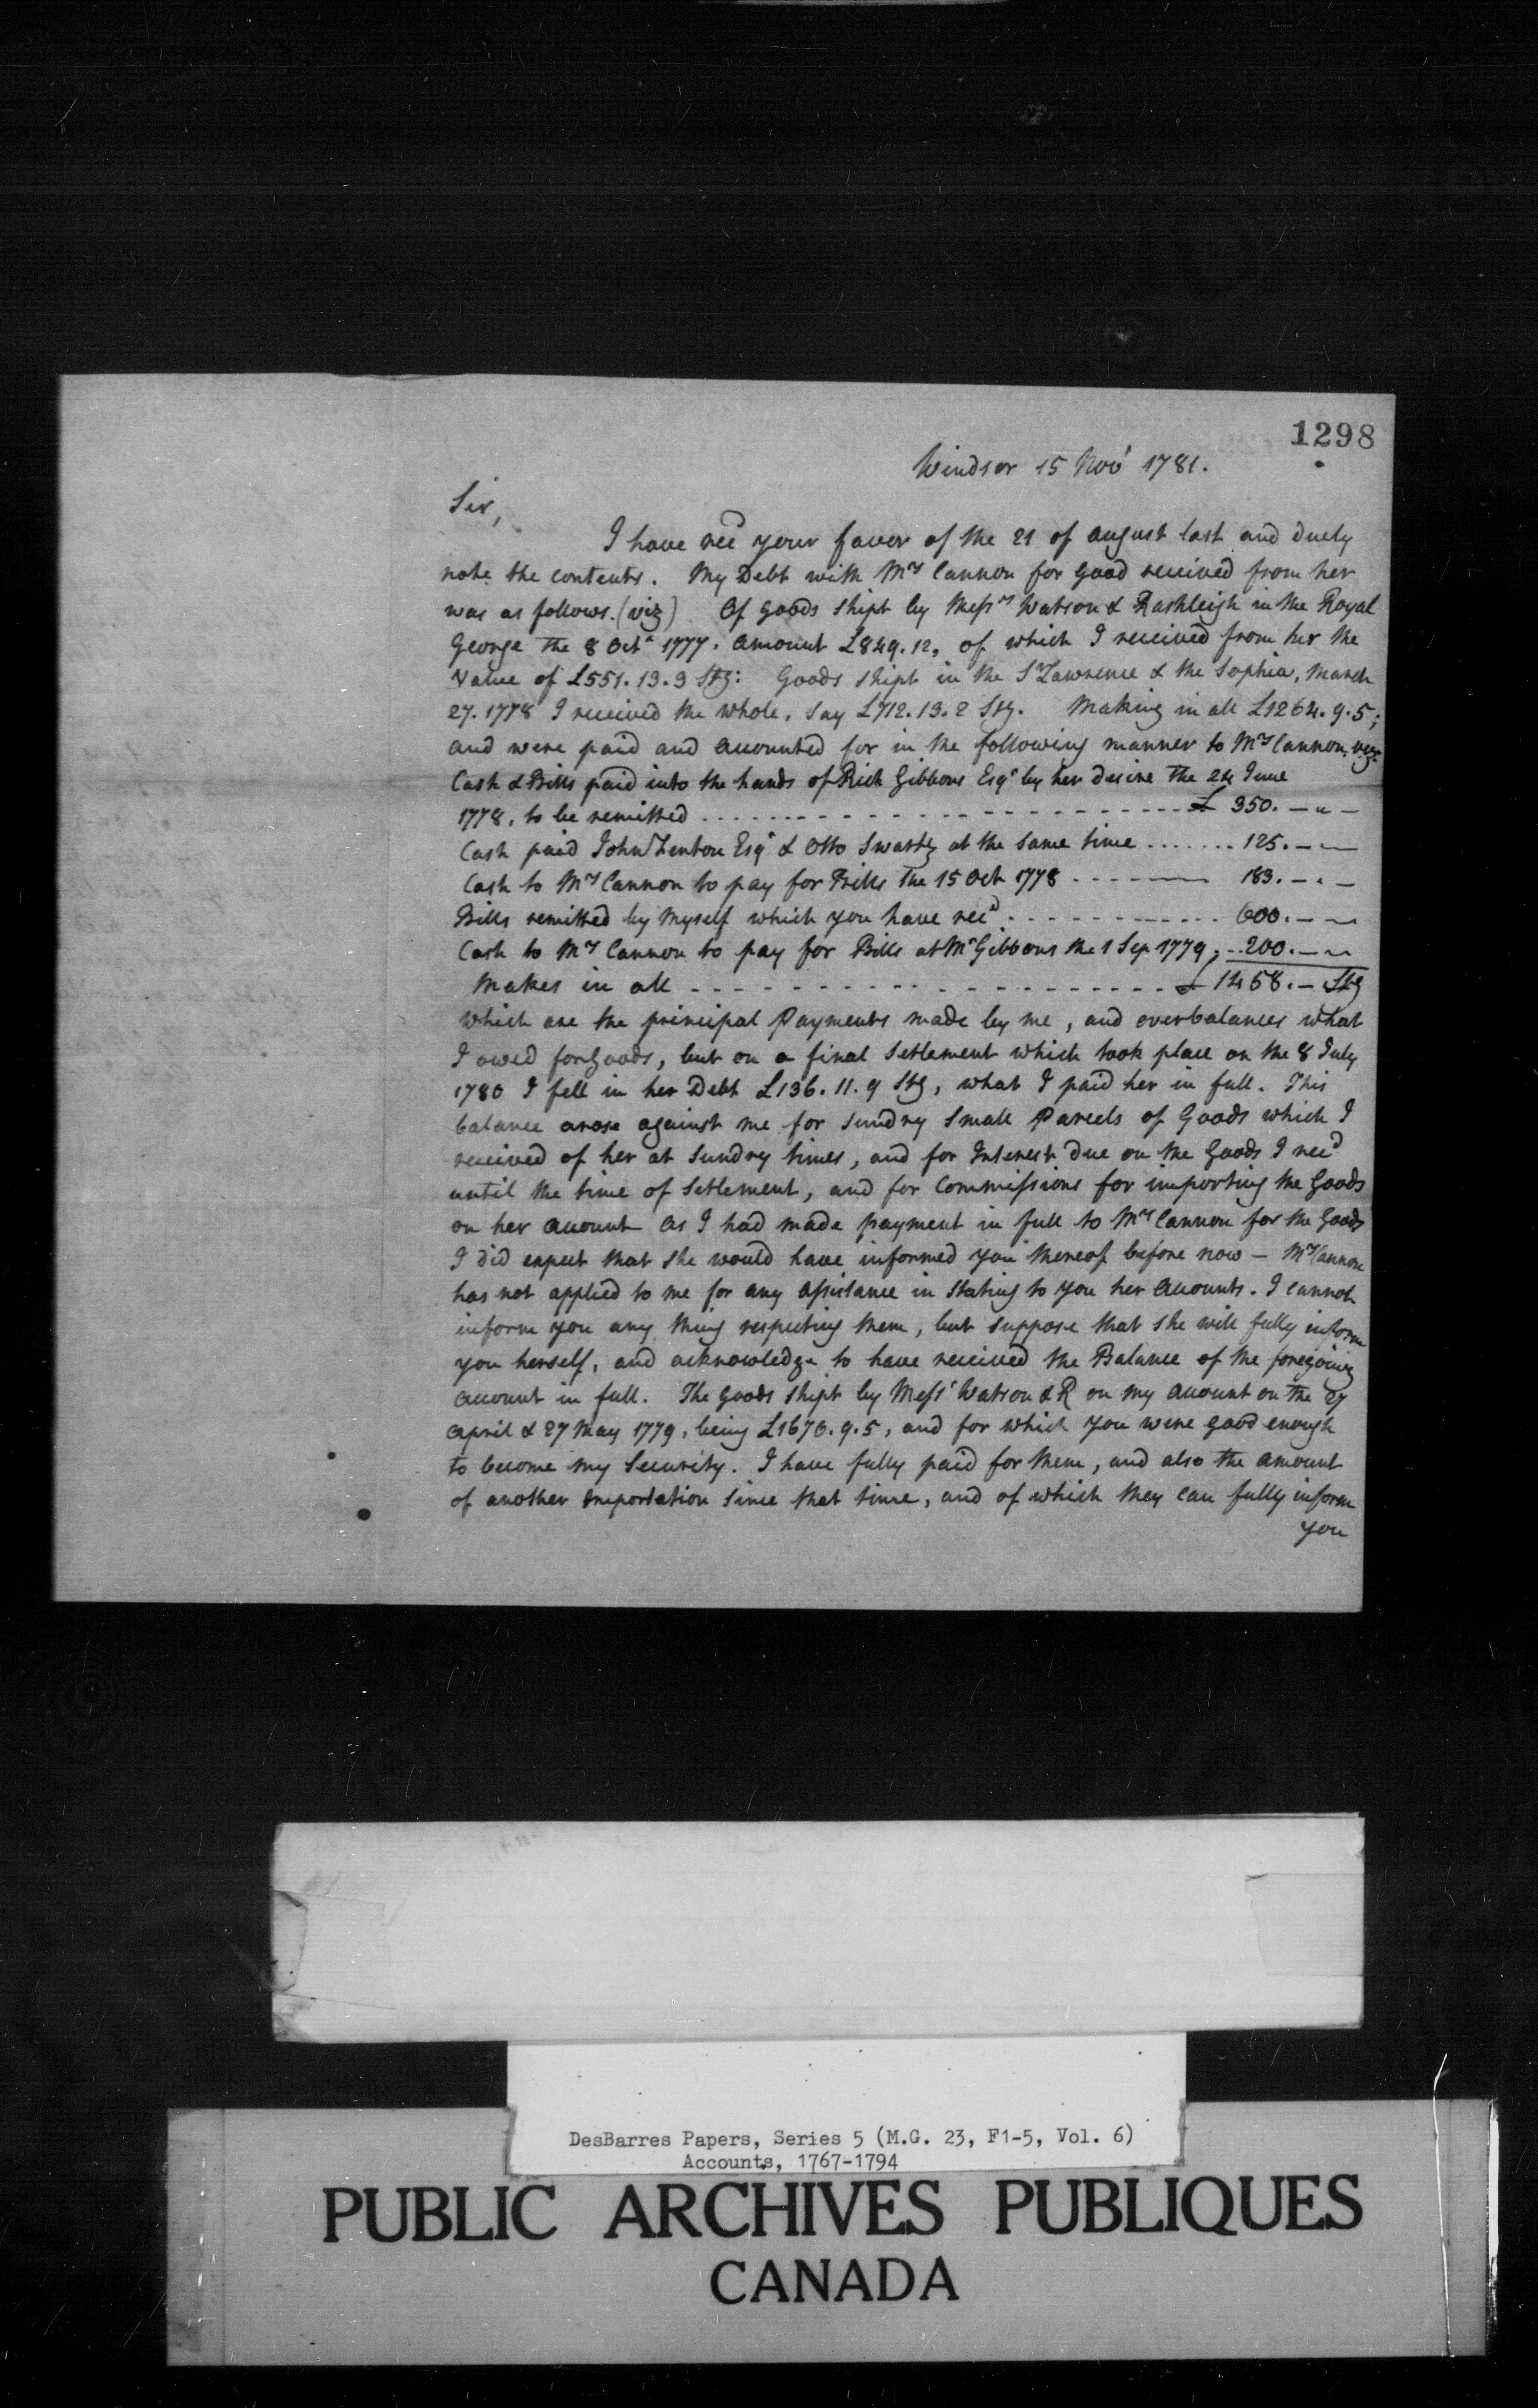 1298
Windsor 15 Nov.r 1781.
Sir,
I have rec'd your favor of the 21 of August last and duely
note the contents. My Debt with Mrs Cannon for good received from her
was as follows. (viz) Of goods shipt by Messrs Watson & Rashleigh in the Royal
George the 8 Octr 1777. amount £849.12, of which I received from her the
Value of £551.13.3 Stg: Goods shipt in the St Lawrence & the Sophia, March
27. 1778 I received the whole, say £712.13.2 Stg. Making in all £1264.9.5;
and were paid and accounted for in the following manner to Mrs Cannon, viz.
Cash & Bills paid into the hands of Rich Gibbons Esqr by her desire the 24 June
1778, to be remitted - - - £ 350. - " -
Cash paid John Fenton Esqr & Otto Swartz at the same time . . . . . . . 125. - -
Cash to Mrs Cannon to pay for Bills the 15 Oct 1778 - - - - 183. - " -
Bills remitted by myself which you have rec'd - - - - 600. - -
Cash to Mrs Cannon to pay for Bills at Mr Gibbons the 1 Sep 1779, - 200. - -
Makes in all - - - - £ 1458. - Stg
Which are the principal Payments made by me, and overbalances what
I owed for Goods, but on a final Settlement which took place on the 8 July
1780 I fell in her Debt £136.11.9 Stg, what I paid her in full. This
balance arose against me for sundry small Parcels of Goods which I
received of her at sundry times, and for Interest due on the Goods I rec'd
until the time of Settlement, and for Commissions for importing the Goods
on her account as I had made payment in full to Mrs Cannon for the Goods
I did expect that she would have informed you thereof before now - Mrs Cannon
has not applied to me for any assistance in stating to you her Accounts. I cannot
inform you any thing respecting them, but suppose that she will fully inform
you herself, and acknowledge to have received the Balance of the foregoing
account in full. The goods shipt by Messrs Watson & R on my account on the 27
April & 27 May 1779, being £1676.9.5, and for which you were good enough
to become my Security. I have fully paid for them, and also the amount
of another Importation since that time, and of which they can fully inform
you
DesBarres Papers, Series 5 (M.G. 23, F1-5, Vol. 6)
Accounts, 1767-1794
PUBLIC ARCHIVES PUBLIQUES
CANADA